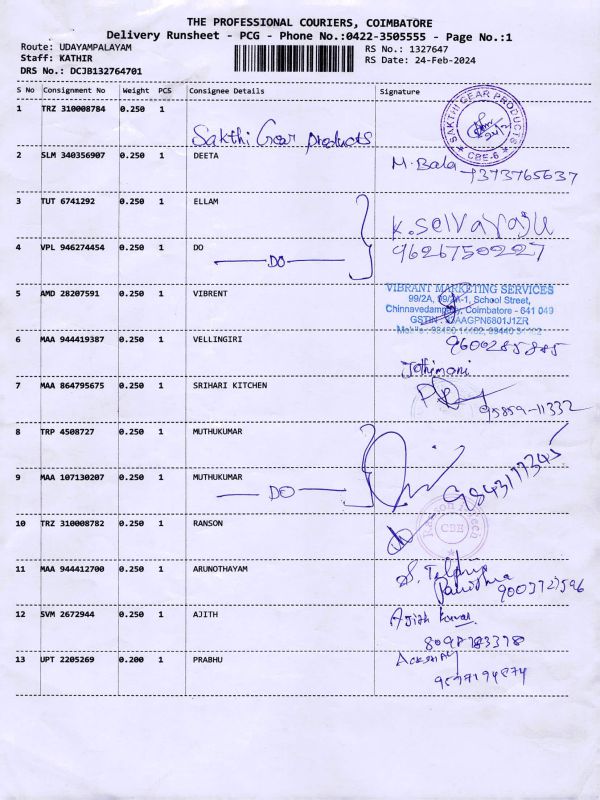 THE PROFESSIONAL COURIERS, COIMBATORE
Delivery Runsheet - PCG - Phone No.:0422-3505555 - Page No.:1
Route: UDAYAMPALAYAM
RS No.: 1327647
Staff: KATHIR
RS Date: 24-Feb-2024
DRS No.: DCJB132764701
S No Consignment No Weight PCS Consignee Details Signature
1 TRZ 310008784 0.250 1
Sakthi Gear Products
SAKTHI GEAR PRODUCTS
CBE-6
2 SLM 340356907 0.250 1 DEETA
M. Bala
7373765637
3 TUT 6741292 0.250 1 ELLAM
K. Selvaraju
4 VPL 946274454 0.250 1 DO
9626750227
DO
5 AMD 28207591 0.250 1 VIBRENT
VIBRANT MARKETING SERVICES
99/2A, 99/2A-1, School Street,
Chinnavedampatty, Coimbatore - 641 049
6 MAA 944419387 0.250 1 VELLINGIRI
9600285885
Jothimani
7 MAA 864795675 0.250 1 SRIHARI KITCHEN
95859-11332
8 TRP 4508727 0.250 1 MUTHUKUMAR
9 MAA 107130207 0.250 1 MUTHUKUMAR
DO
9843177345
10 TRZ 310008782 0.250 1 RANSON
CBE
11 MAA 944412700 0.250 1 ARUNOTHAYAM
12 SVM 2672944 0.250 1 AJITH
Ajith Kumar
13 UPT 2205269 0.200 1 PRABHU